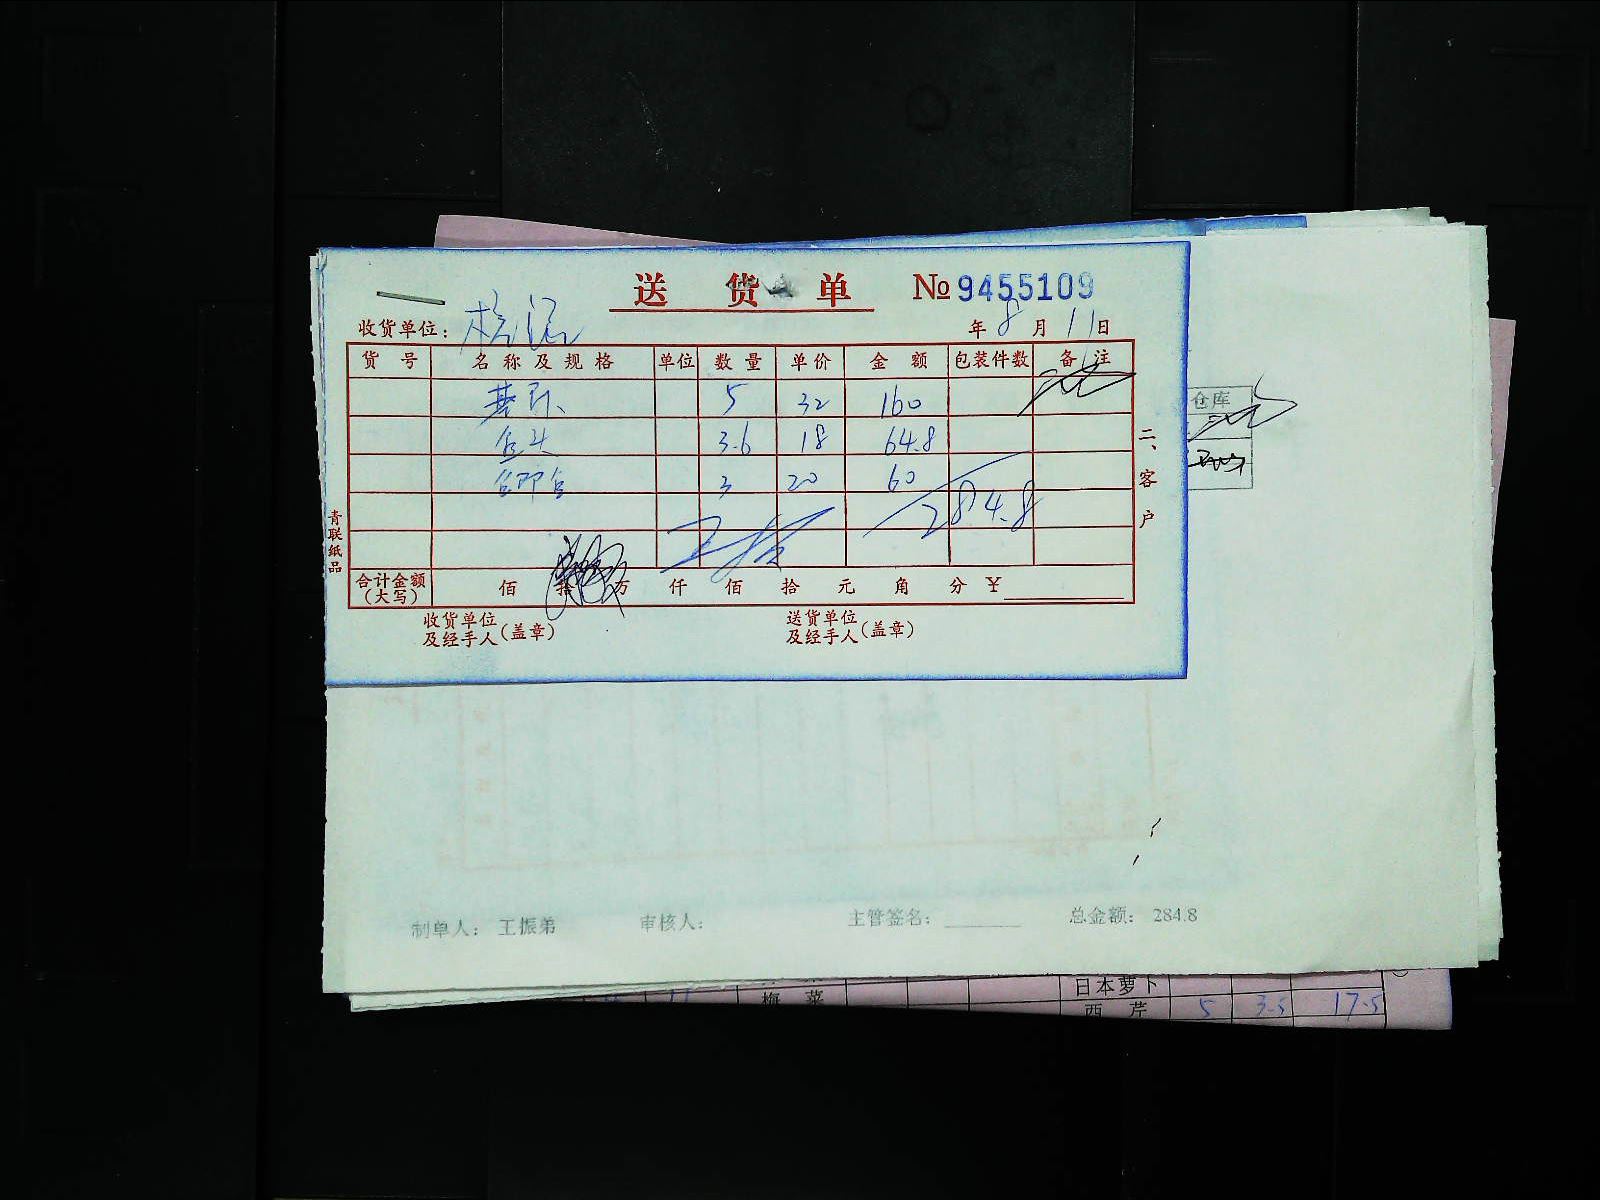 送货单 № 9455109
收货单位： 年 8 月 11 日
货号 名称及规格 单位 数量 单价 金额 包装件数 备注
基虾 5 32 160
鱼头 3.6 18 64.8
鲫鱼 3 20 60
284.8
合计金额（大写） 佰 拾 万 仟 佰 拾 元 角 分 ￥
收货单位及经手人（盖章） 送货单位及经手人（盖章）
青联纸品
二、客户
仓库
制单人： 王振弟 审核人： 主管签名： 总金额： 284.8
日本萝卜
梅菜
西芹 5 3.5 17.5